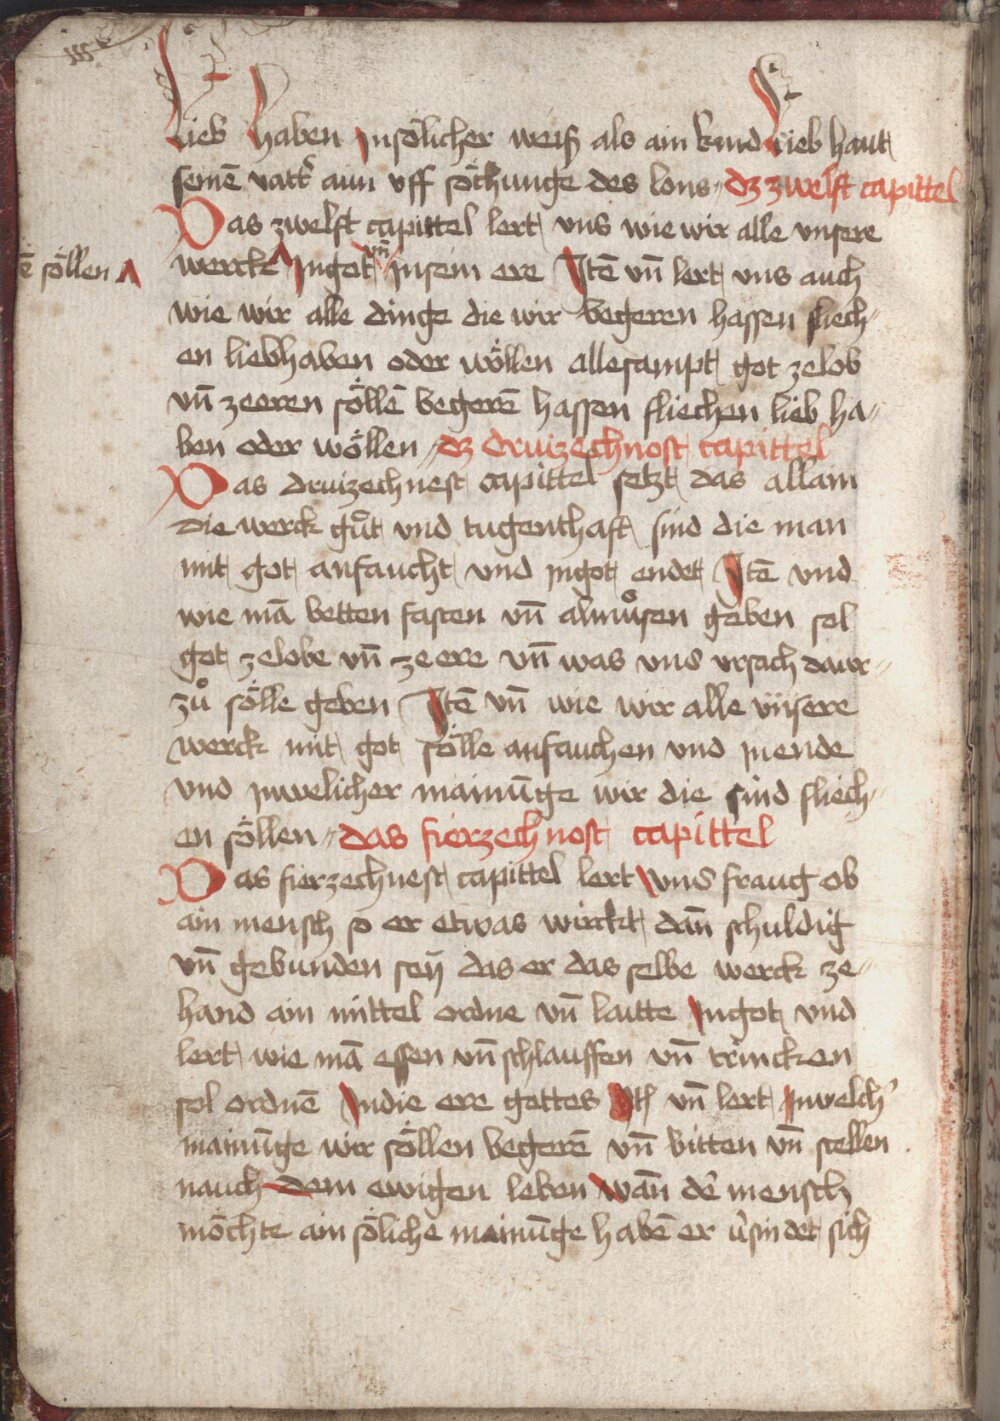 Lieb haben Jnsölicher weiß als ain kind Lieb haut
seinē vattr̄ aun vff söchunge des lons dz zwelft capittel
Das zwelft capittel lert vns wie wir alle vnsere
ē söllen
werck Jngot vn̄ Jnsein ere Jtē vn̄ lert vns auch
wie wir alle dinge die wir begeren hassen fliech„
en liebhaben oder wöllen allesampt got zelob
vn̄ zeeren söllē begerē hassen fliechen lieb ha„
ben oder wöllen dz druizechnost capittel
Das druizechnest capittel setzt das allain
die werck gůt vnd tugenthaft sind die man
mit got anfaucht vnd jngot endet Jtē vnd
wie mā betten fasten vn̄ almůsen geben sol
got zelobe vn̄ zeere vn̄ was vns vrsach dar„
zů sölle geben Jtē vn̄ wie wir alle vnsere
werck mit got sölle anfauchen vnd jnende
vnd jnwelicher mainūge wir die sind fliech„
en söllen das fierzechnost capittel
Das fierzechnest capittel lert vnd fraug ob
ain mensch so er etwas wirckt dan̄ schuldig
vn̄ gebunden seÿ das er das selbe werck ze„
hand ain mittel ordne vn̄ laitte Jngot vnd
lert wie mā essen vn̄ schlauffen vn̄ trincken
sol ordnē Jndie ere gottes Jtē vn̄ lert Jnwelch'
mainūge wir söllen begerē vn̄ bitten vn̄ stellen
nauch dem ewigen leben wān dē mensch
möchte ain söliche mainūge habē er v̓sindet sich